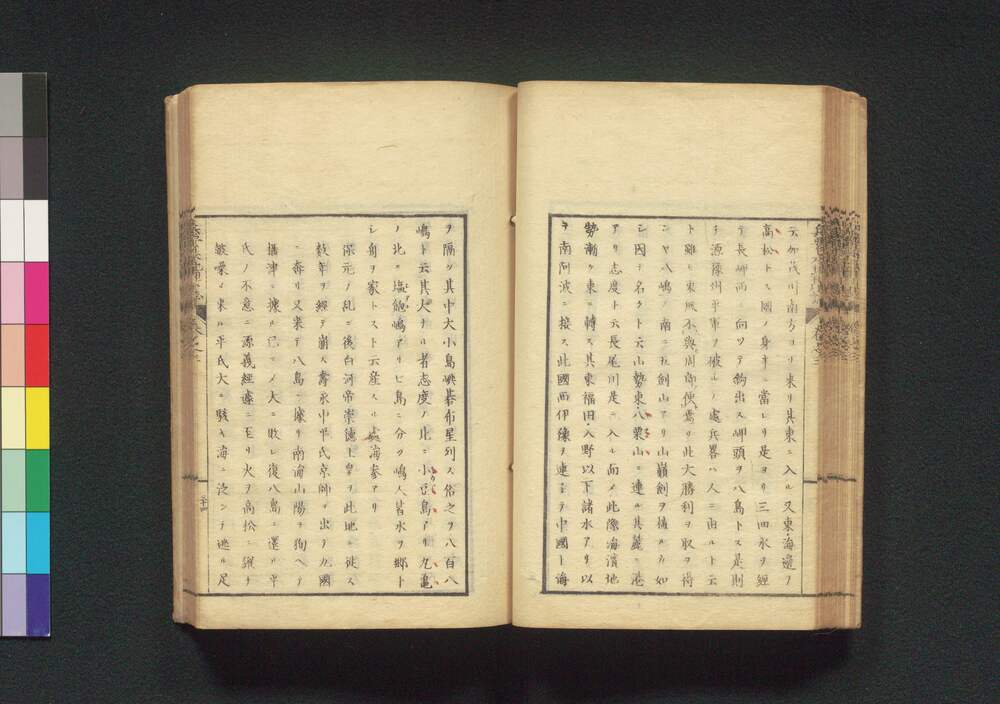 云加茂川南方ヨリ来リ其東ニ入ル又東海邉ヲ
高松トス國ノ身半ニ當レリ是ヨリ三四水ヲ經
テ長岬西ニ向ツテ鈎出ス岬頭ヲ八島トス是則
チ源豫州平軍ヲ破ルノ處兵畧ハ人ニ由ルト云
ト雖ㇳ東風不與周郎便焉ソ此大勝利ヲ取ヲ得
ンヤ八嶋ノ南ニ五劍山アリ山巓劍ヲ植ルカ如
シ因テ名クト云山勢東八栗山ニ連ル其麓ニ港
アリ志度ト云長尾川是ニ入ル而メ此際海濱地
勢漸ク東ニ轉ス其東福田入野以下諸水アリ以
テ南阿波ニ接ス此國西伊豫ヲ連ネテ中國ト海
ヲ隔ツ其中大小島嶼碁布星列ス俗之ヲ八百八
嶋ト云其大ナル者志度ノ北ニ小豆島アリ丸亀
ノ北ニ塩飽嶋アリ七島ニ分ツ嶋人皆水ヲ郷ト
シ舟ヲ家トスト云産スル處海參アリ
保元ノ乱ニ後白河帝崇徳上皇ヲ此地ニ徙ス
数年ヲ經テ崩ス壽永中平氏京師ヲ出テ九國
ニ奔リ又来テ八島ニ據リ南海山陽ヲ狥ヘテ
攝津ニ據ル已ニメ大ニ敗レ復八島ニ還ル平
氏ノ不意ニ源義經遽ニ至リ火ヲ高松ニ縱チ
皷譟シ来ル平氏大ニ駭キ海ニ泛ンテ逃ル足